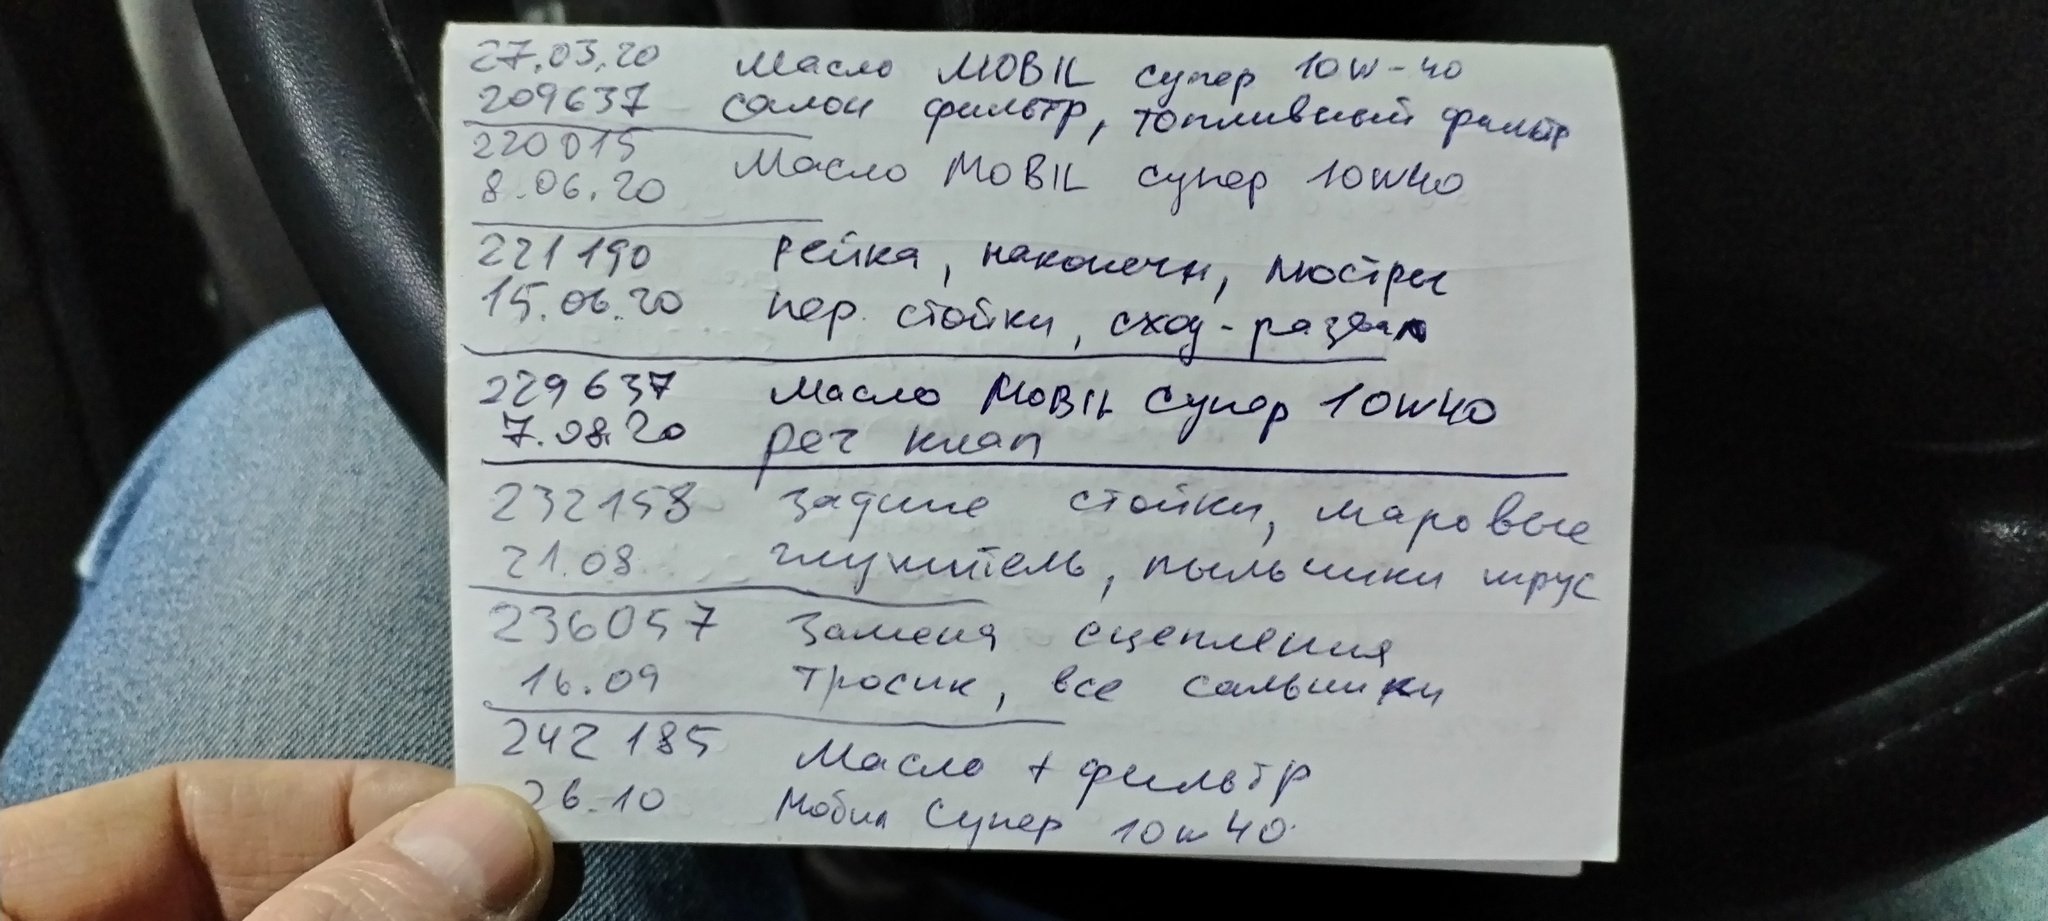 27.03.20 Масло MOBIL супер 10W-40
209637 салон фильтр, топливный фильтр
220015 Масло MOBIL супер 10W40
8.06.20
221190 Рейка, наконечн, люстры
15.06.20 пер. стойки, сход-развал
229637 Масло MOBIL Супер 10W40
7.08.20 рег клап
232158 Задние стойки, шаровые
21.08 глушитель, пыльники шрус
236057 Замена сцепления
16.09 тросик, все сальники
242185 Масло + фильтр
26.10 Мобил Супер 10w40